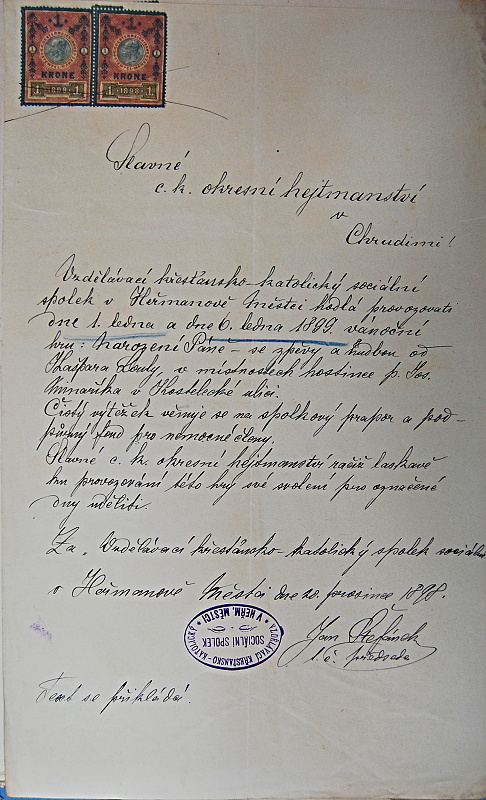 1 1
KRONE KRONE
1 1898 1 1 1898 1
Slavné
c. k. okresní hejtmanství
v
Chrudimi!
Vzdělávací křesťansko-katolický sociální
spolek v Heřmanově Městci hodlá provozovati
dne 1. ledna a dne 6. ledna 1899. vánoční
hru: Narození Páně - se zpěvy a hudbou od
Kašpara Louly, v místnostech hostince p. Jos.
Minaříka v Kostelecké ulici.
Čistý výtěžek věnuje se na spolkový prapor a pod-
půrný fond pro nemocné členy.
Slavné c. k. okresní hejtmanství račiž laskavě
ku provozování této hry své svolení pro označené
dny uděliti.
Za „Vzdělávací křesťansko-katolický spolek sociální
v Heřmanově Městci dne 20. prosince 1898.
VZDĚLÁVACÍ KŘESŤANSKO-KATOLICKÝ
SOCIÁLNÍ SPOLEK
V HEŘM. MĚSTCI
Jan
t. č. předseda
Text se přikládá.